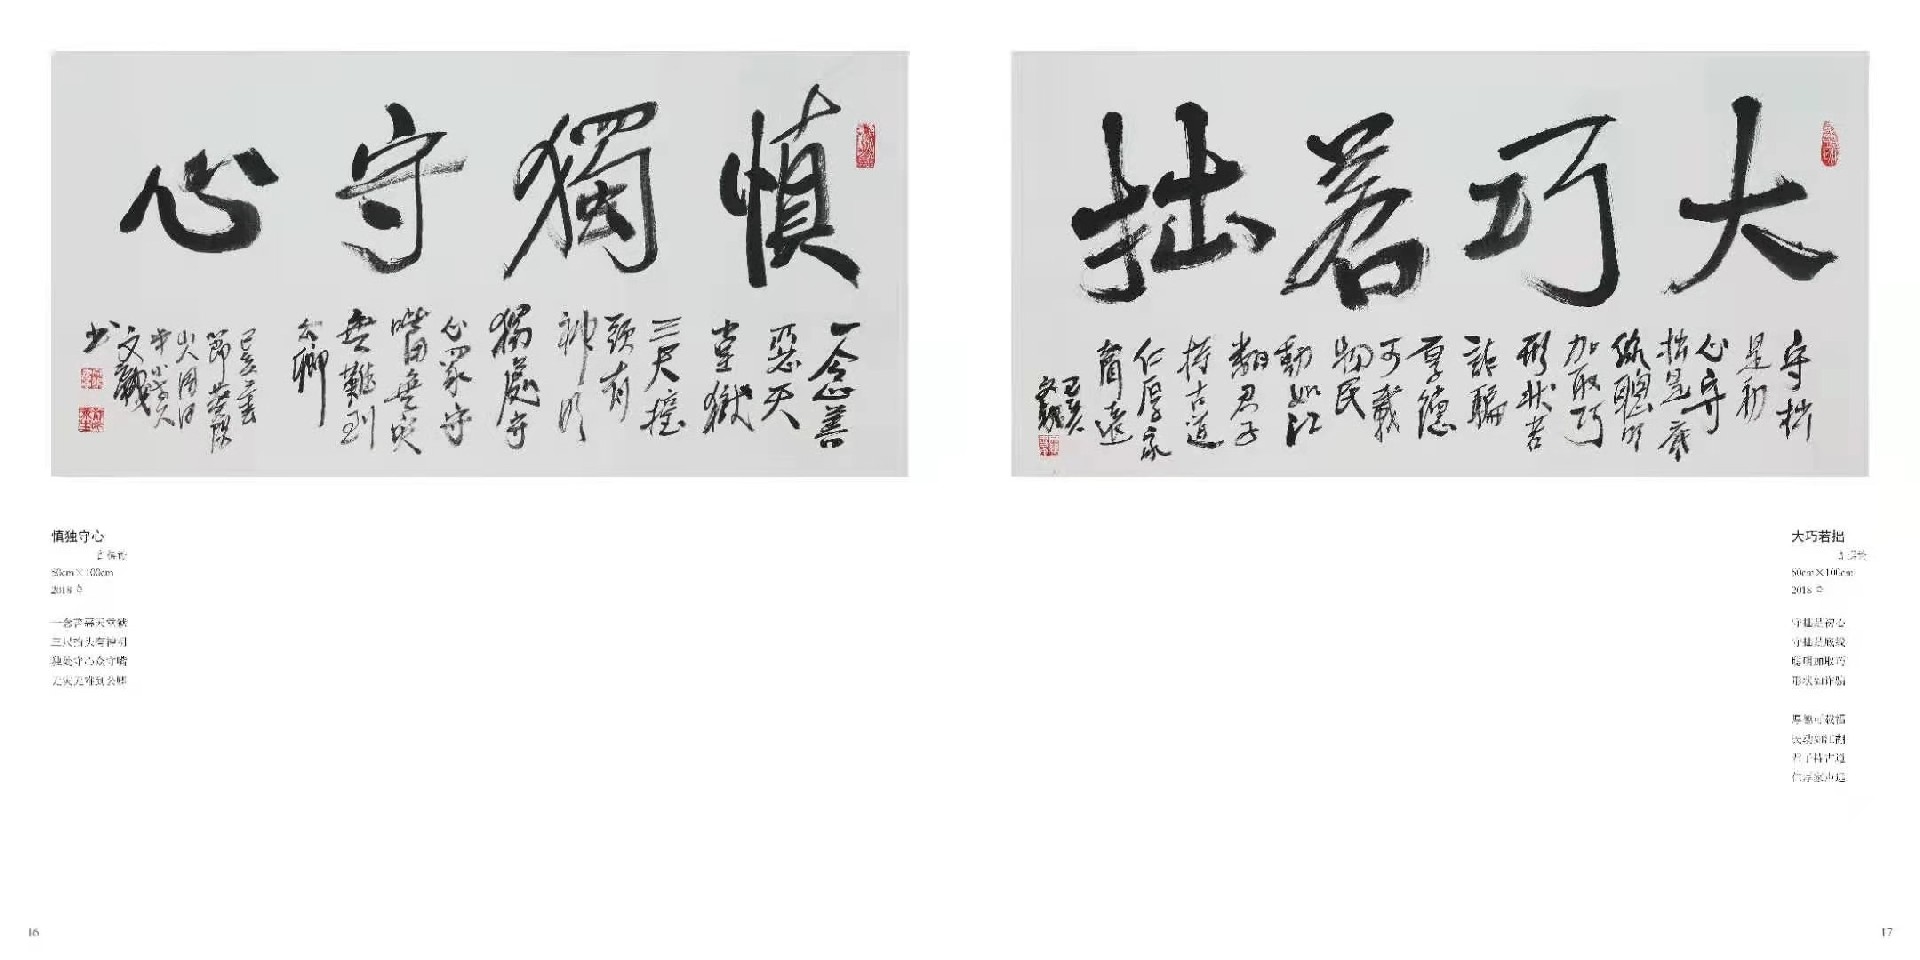 慎獨守心
一念善
惡天
堂獄
三尺擡
頭有
神明
獨處守
心眾守
嘴無災
無難到
公卿
己亥
節
文
书
慎独守心
60cm×100cm
2018
一念善恶天堂狱
三尺抬头有神明
独处守心众守嘴
无灾无难到公卿
16
大巧若拙
守拙
是初
心守
拙是底
線聰明
加取巧
形状若
詐騙
厚德
可載
物民
動如江
湖君子
持古道
仁厚家
聲遠
己亥
大巧若拙
60cm×100cm
2018
守拙是初心
守拙是底线
聪明加取巧
形状如诈骗
厚德可载福
民动如江湖
君子持古道
仁厚家声远
17